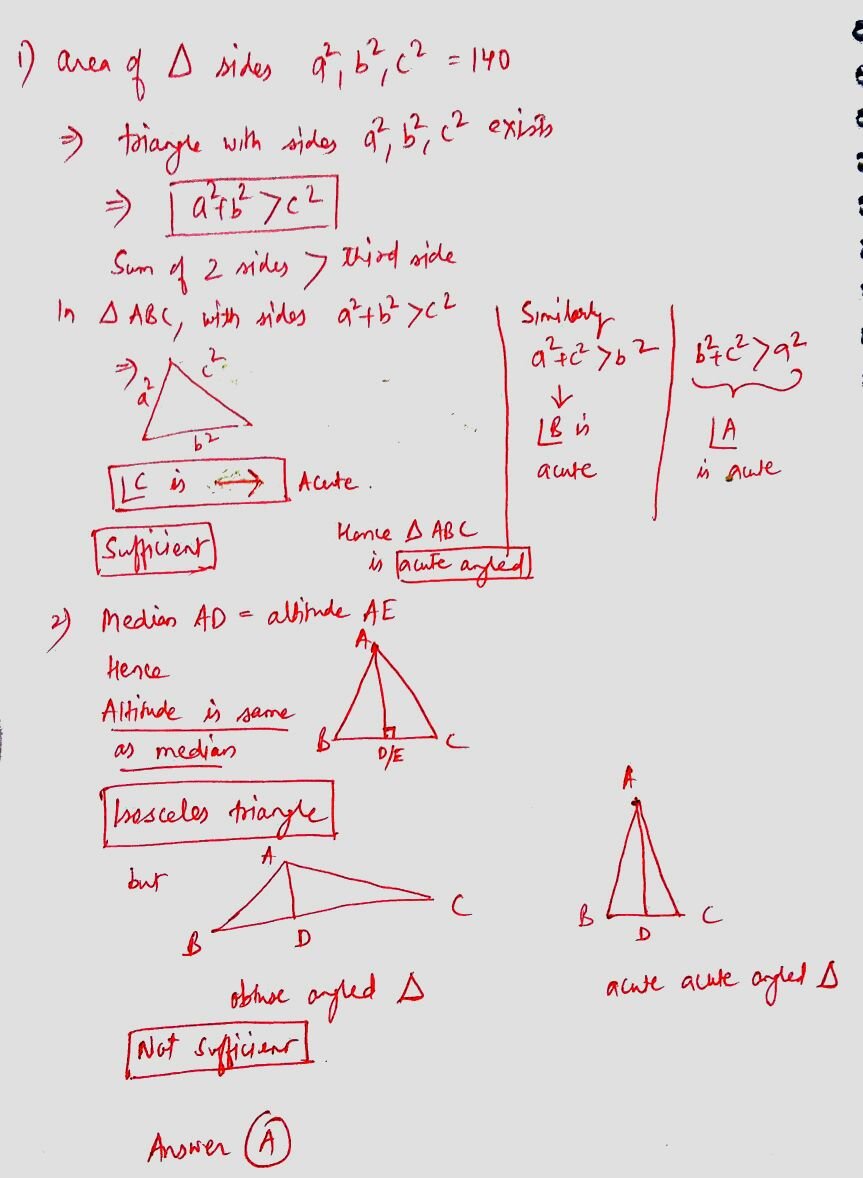 1) area of Δ sides a², b², c² = 140
⇒ triangle with sides a², b², c² exists
⇒ a²+b² > c²
Sum of 2 sides > third side
In Δ ABC, with sides a²+b² > c²
⇒
a²
c²
b²
∠C is → Acute.
Sufficient
Similarly
a²+c² > b²
↓
∠B is
acute
b²+c² > a²
∠A
is acute
Hence Δ ABC
is acute angled
2) Median AD = altitude AE
Hence
Altitude is same
as median
A
B
D/E
C
Isosceles triangle
but
A
B
D
C
obtuse angled Δ
A
B
D
C
acute acute angled Δ
Not sufficient
Answer A